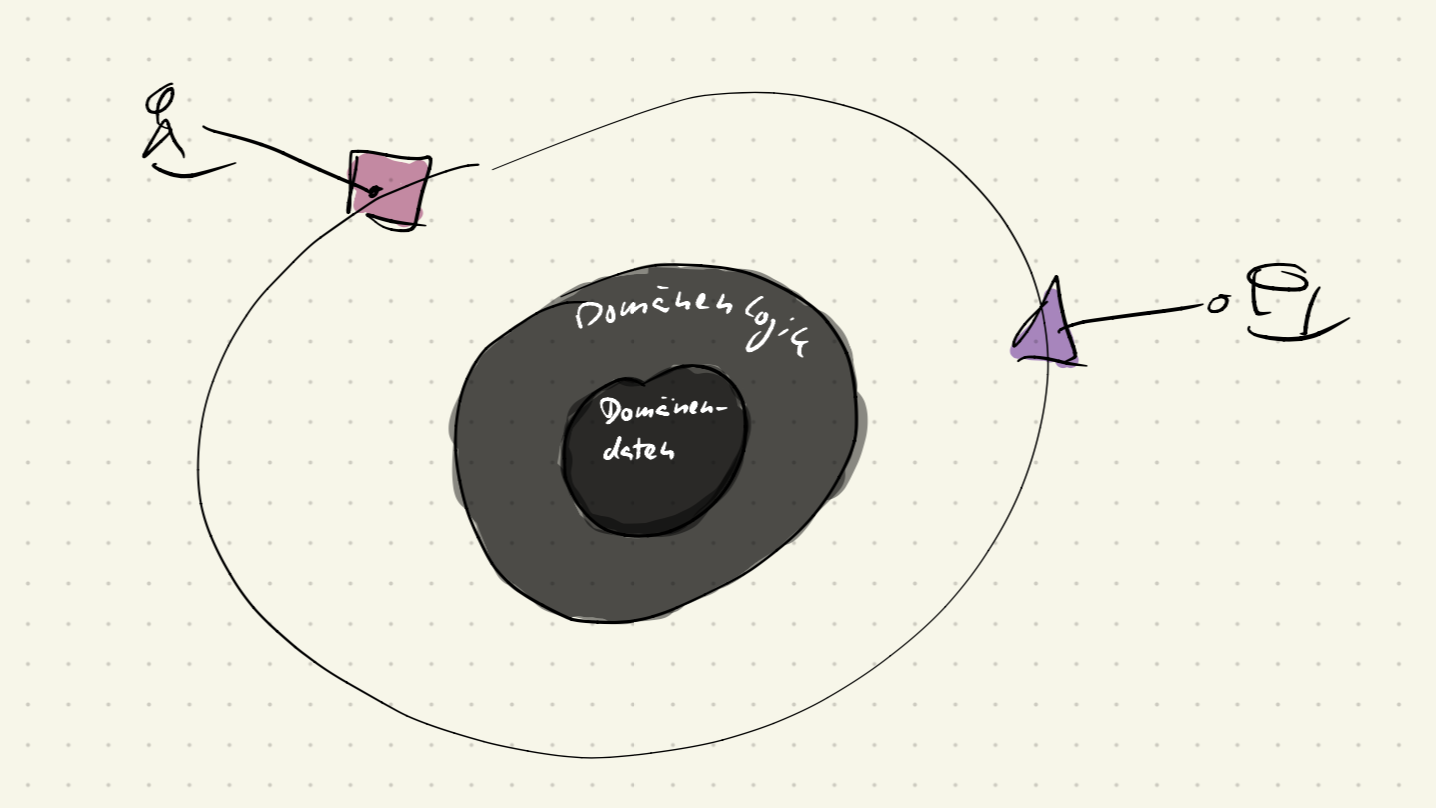 Domänenlogik
Domänen-
daten